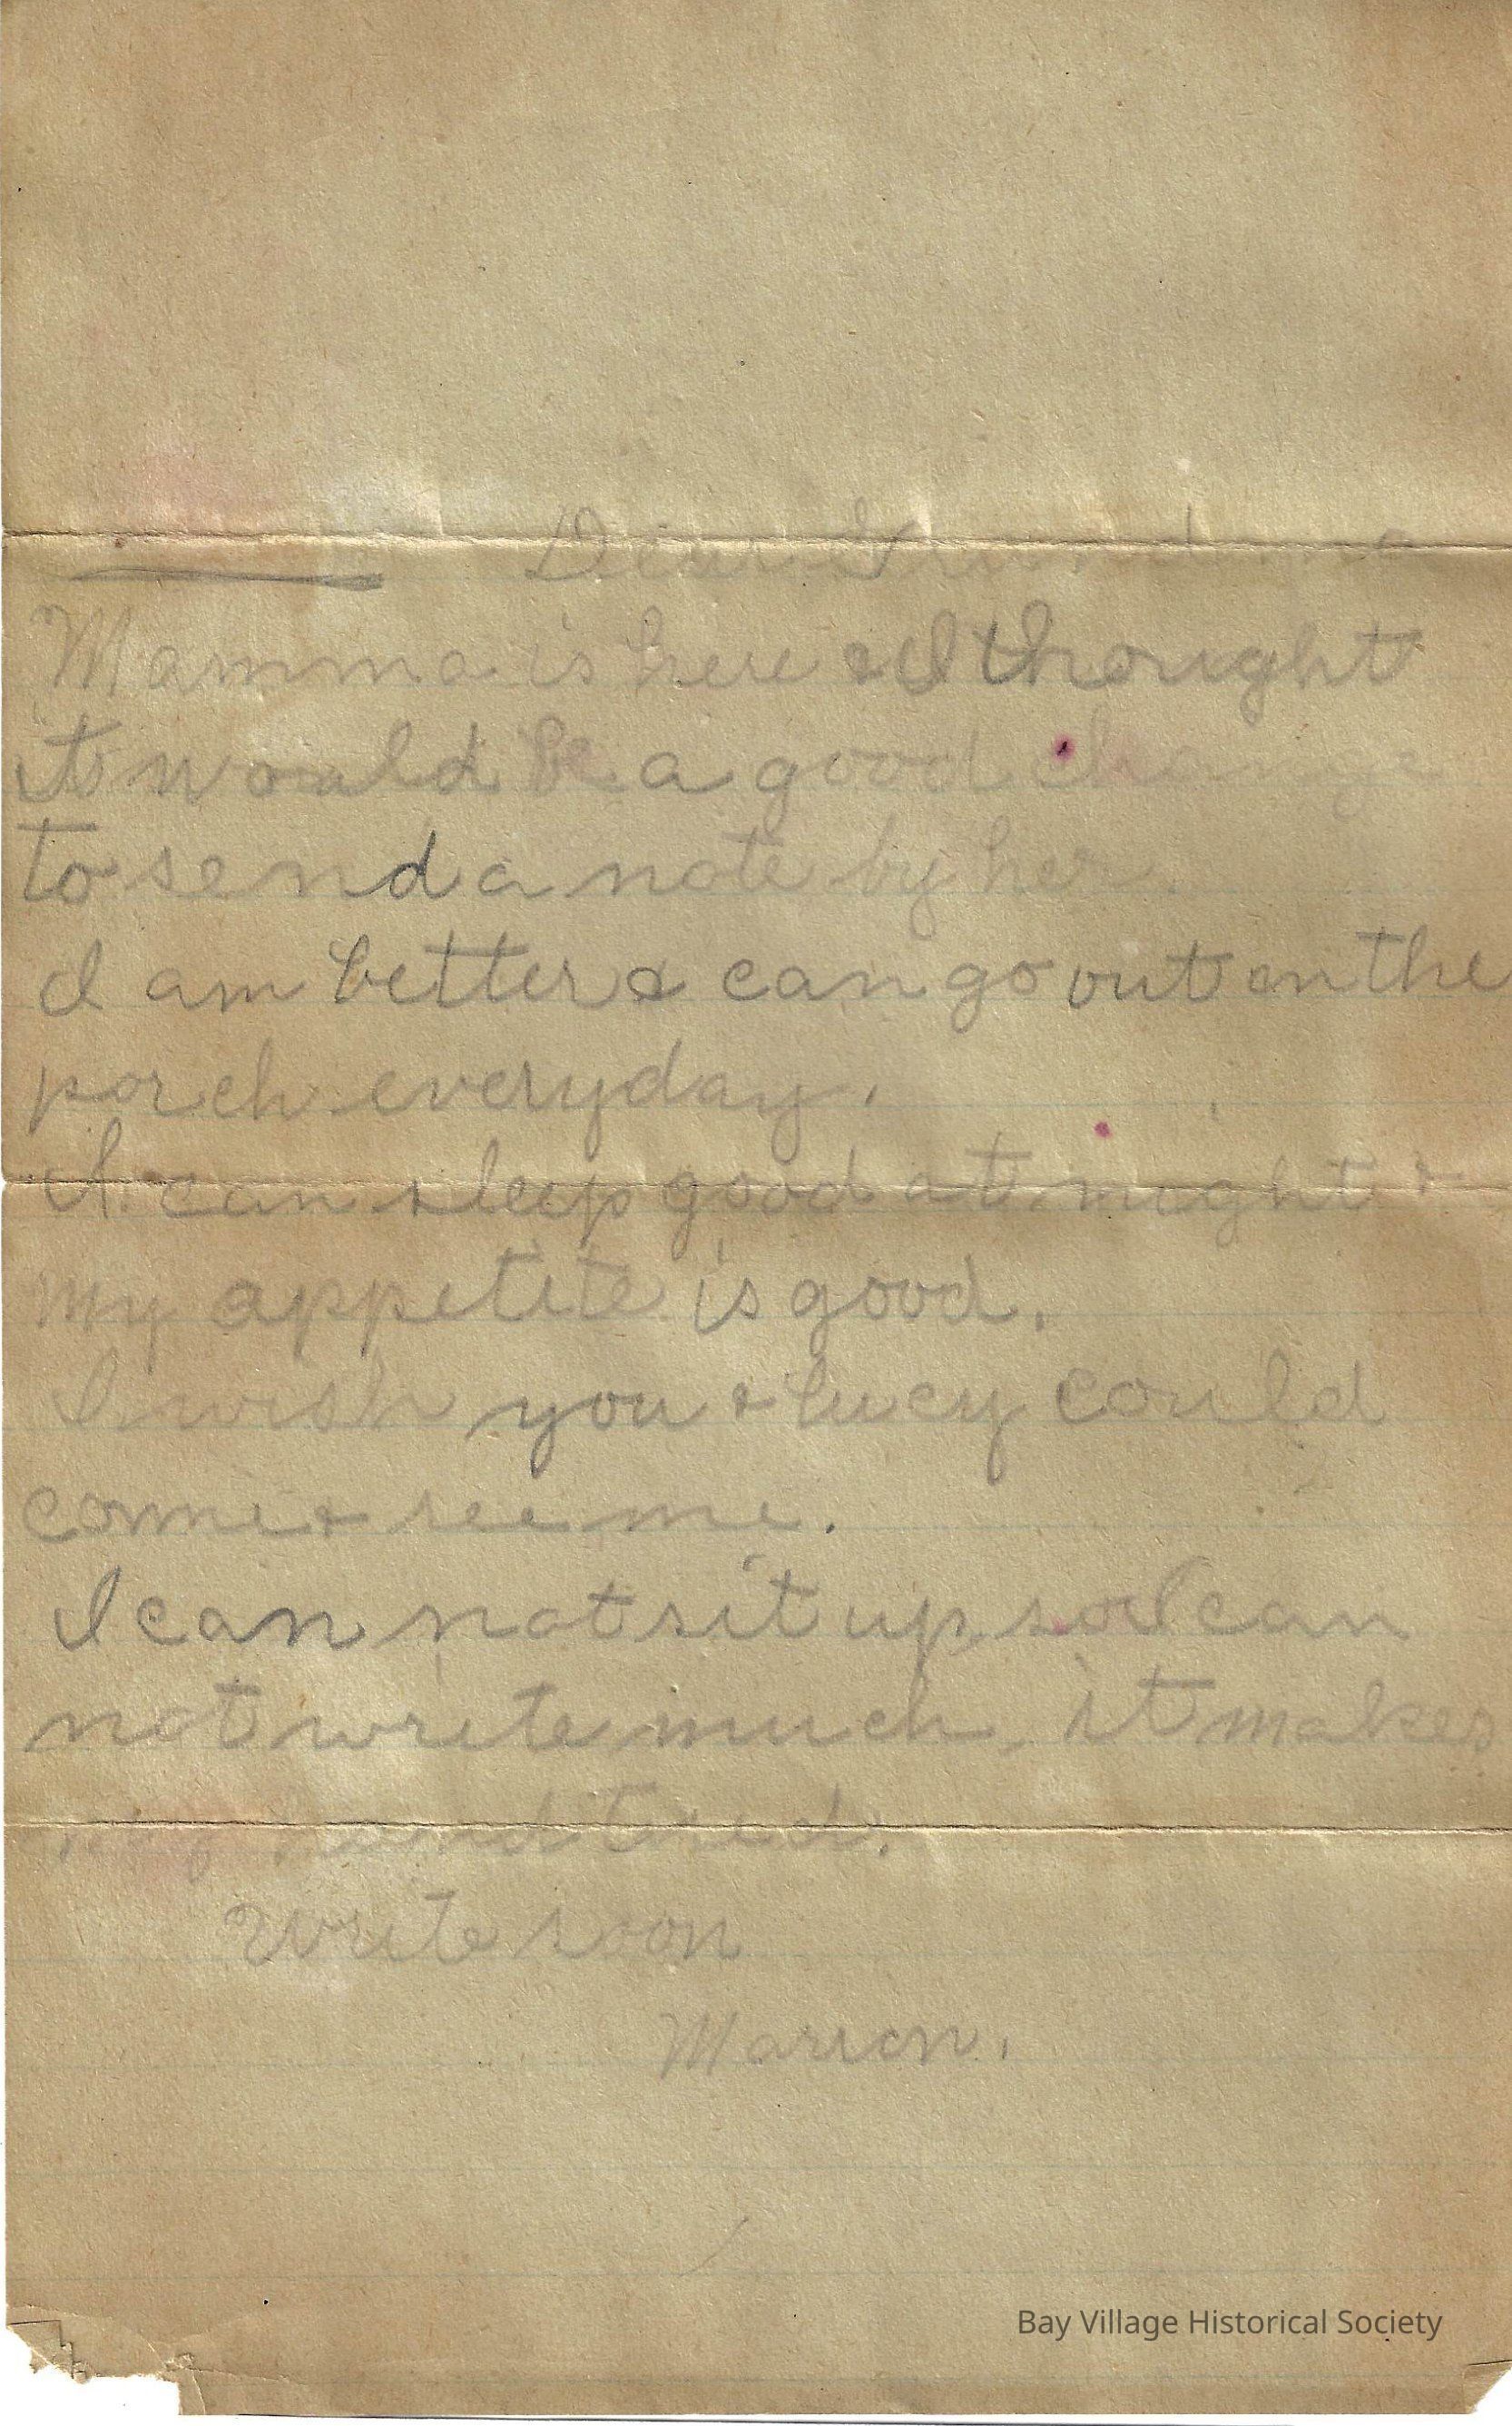 Dear Grandma
Mamma is here & I thought
it would be a good change
to send a note by her.
I am better & can go out on the
porch everyday.
I can sleep good at night &
my appetite is good.
I wish you & Lucy could
come & see me.
I can not sit up so I can
not write much, it makes
my hand tired.
Write soon
Marion.
Bay Village Historical Society